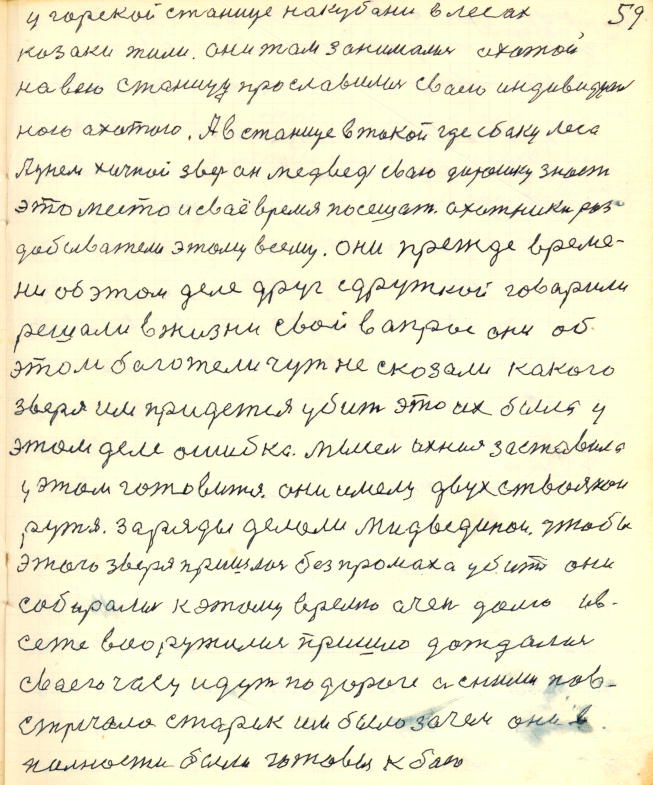 59
у горской станице на кубани в лесах
козаки жили. они там занимались охотой
на всю станицу прославились своею индивидуал
ного охотого. А в станице в такой где сбаку леса
хичной звер он медвед сваю дорошку знает
это место и сваё время посещат. охотники раз
добыватели этому всему. они прежде време-
ни об этом деле друг сдружкой говорили
решали в жизни свой вапрос они об
этом боготели чут не сказали какого
зверя им придется убит это их была у
этом деле ошибка. мысел ихния заставила
у этом готовится. они имели двух стволкои
ружя. заряды делали мидведипои, чтобы
этого зверя пришлос без промаха убит они
собирались к этому времю очен долго ив-
сеже вооружились пришло дождались
сваего часу идут по дороге а сними пов-
стречало старек им было зачем они в
полности были готовы к баю